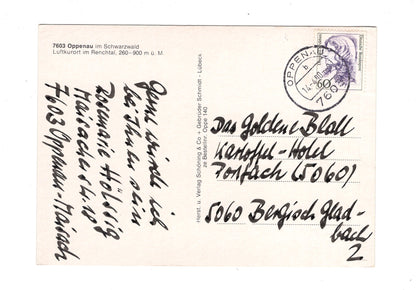 7603 Oppenau im Schwarzwald
Luftkurort im Renchtal, 260–900 m ü. M.
Gern würde ich
bei Ihnen sein
Rosemarie
Maisacherstr.
7603 Oppenau-Maisach
Herst. u. Verlag Schöning & Co + Gebrüder Schmidt - Lübeck
Bestellnr. Oppe 140
OPPENAU
7603
60
Das Goldene Blatt
Kartoffel-Hotel
Postfach (5060)
5060 Bergisch Glad-
bach
2